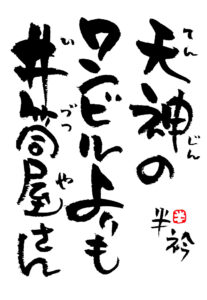 天神の
てんじん
ワンビルよりも
井筒屋さん
いづつや
半衿
半